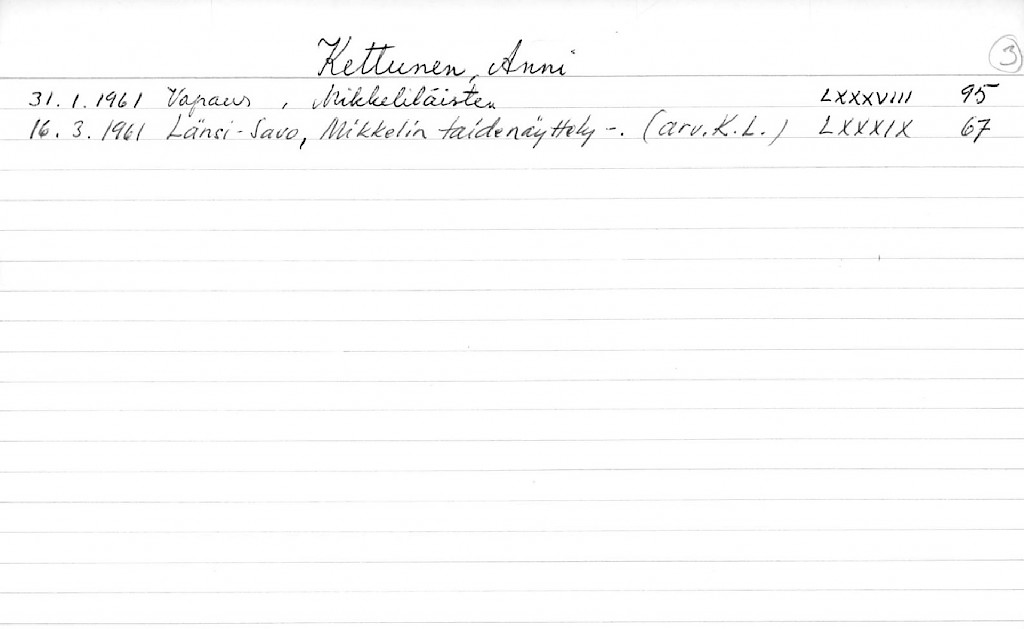 Kettunen, Anni
3
31. 1. 1961 Vapaus, Mikkeliläisten LXXXVIII 95
16. 3. 1961 Länsi-Savo, Mikkelin taidenäyttely -. (arv. K. L.) LXXXIX 67